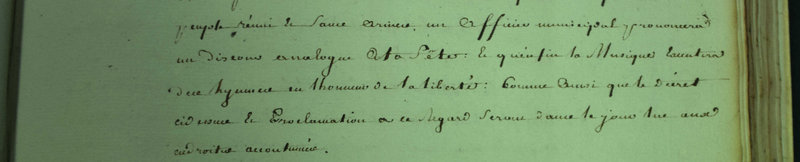 peuple réuni & Sans armes, un officier municipal prononcera
un discours analogue à la fête: & qu'enfin la Musique Exécutera
des hymnes en l'honneur de la liberté: Comme aussi que le décret
cidessus & Proclamation à ce regard seront dans le jour lus aux
endroits accoutumés.